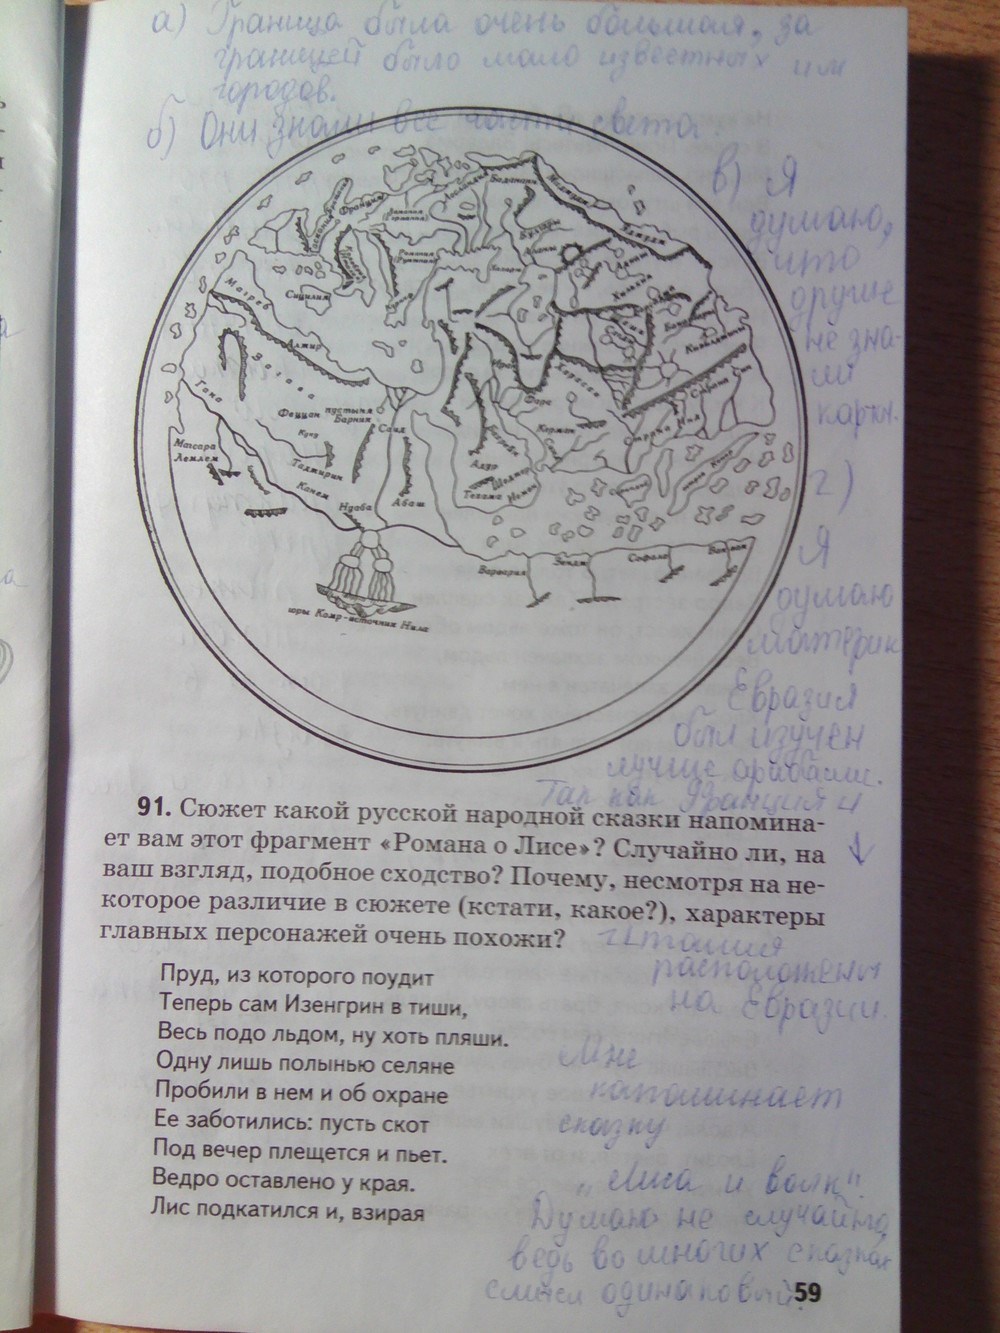 а) Граница была очень большая, за
границей было мало известных им
городов.
б) Они знали все части света.
в) Я
думаю,
что
другие
не зна-
ли
карты.
г)
Я
думаю
материк
Евразия
был изучен
лучше арабами.
Так как Франция и
Италия
расположены
на Евразии.
Франция
Сицилия
Магреб
Алжир
Сахара
Гана
Феццан
пустыня
Барник
Саид
Магзара
Лемлем
Куку
Таджирин
Канем
Нуаба
Абаш
Хорасан
Фарс
Керман
Тегама
Йемен
Варвария
Зендж
Софала
Ваквак
горы Комр-источник Нила
91. Сюжет какой русской народной сказки напомина-
ет вам этот фрагмент «Романа о Лисе»? Случайно ли, на
ваш взгляд, подобное сходство? Почему, несмотря на не-
которое различие в сюжете (кстати, какое?), характеры
главных персонажей очень похожи?
Пруд, из которого поудит
Теперь сам Изенгрин в тиши,
Весь подо льдом, ну хоть пляши.
Одну лишь полынью селяне
Пробили в нем и об охране
Ее заботились: пусть скот
Под вечер плещется и пьет.
Ведро оставлено у края.
Лис подкатился и, взирая
Мне
напоминает
сказку
"Лиса и волк".
Думаю не случайно,
ведь во многих сказках
смысл одинаковый.
59